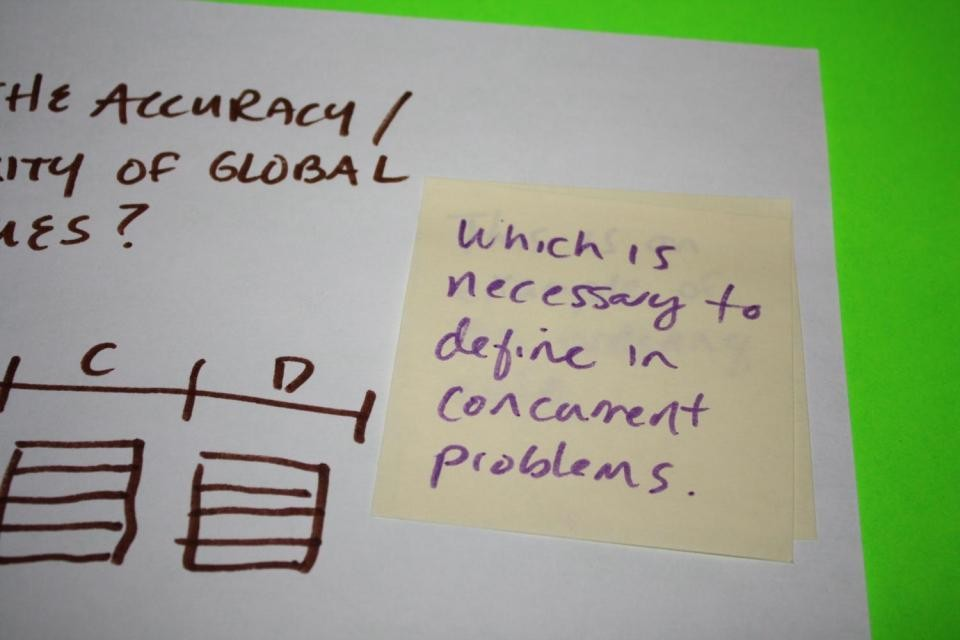 THE ACCURACY /
OF GLOBAL
?
C D
Which is
necessary to
define in
concurrent
problems.